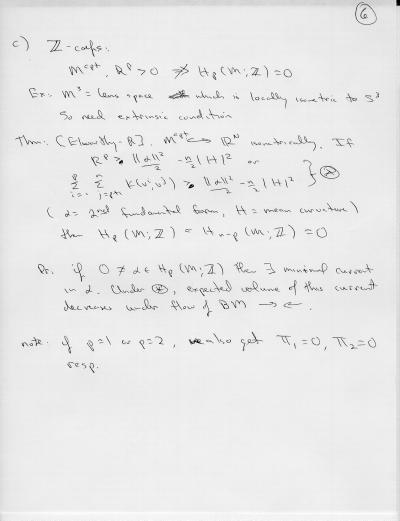 6
c) ℤ-coefs:
M^cpt, R^p > 0 ⇏ H_p(M;ℤ) = 0
Ex: M³ = lens space which is locally isometric to S³
So need extrinsic condition
Thm: (Elworthy-R). M^cpt ↪ ℝ^N isometrically. If
R^p > ||α||²/2 - n/2 |H|² or
Σ_{i=1}^{p} Σ_{j=p+1}^{n} K(v^i, v^j) > ||α||²/2 - n/2 |H|² } ⊛
(α = 2nd fundamental form, H = mean curvature)
then H_p(M;ℤ) = H_{n-p}(M;ℤ) = 0
Pf: if 0 ≠ α ∈ H_p(M;ℤ) then ∃ minimal current
in α. Under ⊛, expected volume of this current
decreases under flow of BM →←.
note: if p=1 or p=2, we also get π₁=0, π₂=0
resp.